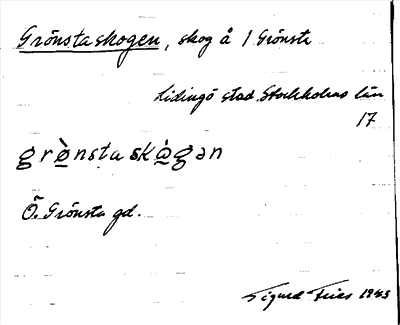 Grönstaskogen, skog å 1 Grönsta
Lidingö stad, Stockholms län
17
grø̀nstaskà̱gən
Ö. Grönsta gd.
Sigurd Fries 1943